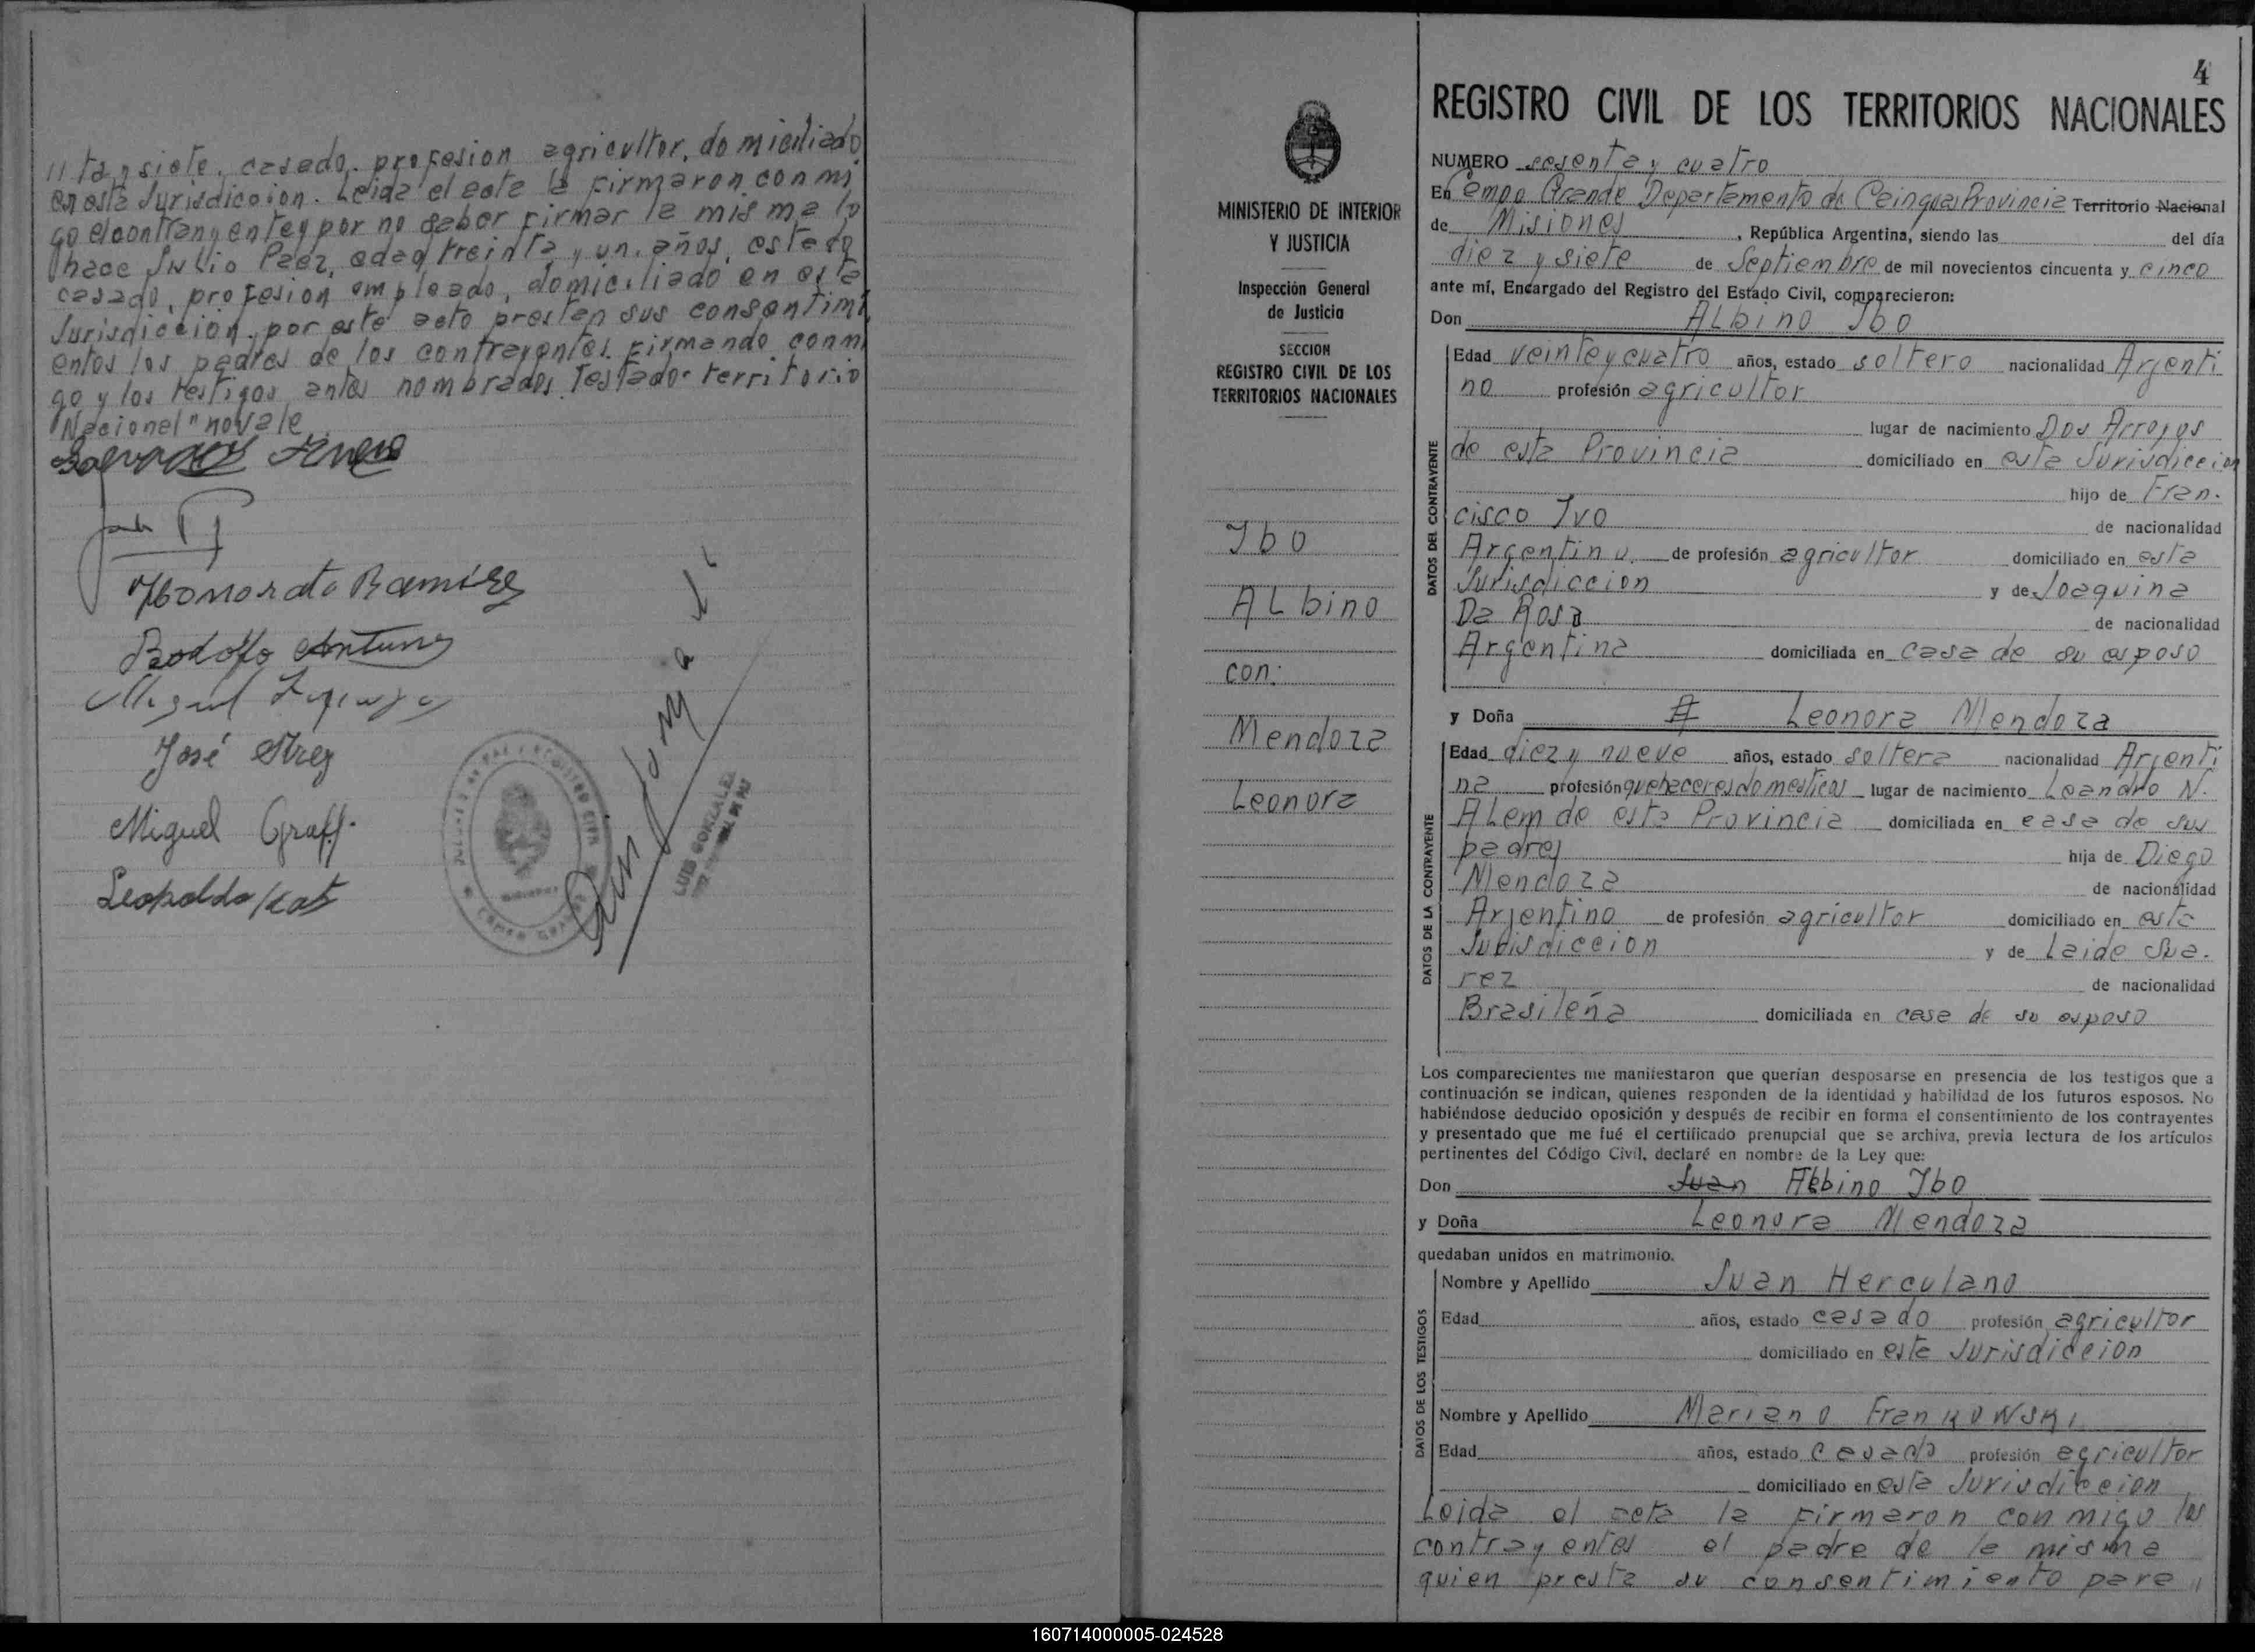 " ta y siete, casado, profesion agricultor, domiciliado
en esta Jurisdiccion. Leida el acta la firmaron con mi
go el contrayente y por no saber firmar la misma lo
hace Julio Paez, edad treinta y un años, estado
casado, profesion empleado, domiciliado en esta
Jurisdiccion, por este acto prestan sus consentimi
entos los padres de los contrayentes firmando conmi
go y los testigos antes nombrados. Testado: territorio
Nacional" no vale
Honorato Ramirez
Rodolfo Antunes
Miguel
José
Miguel Graff.
Leopoldo Katz
LUIS GONZALEZ
4
REGISTRO CIVIL DE LOS TERRITORIOS NACIONALES
MINISTERIO DE INTERIOR
Y JUSTICIA
Inspección General
de Justicia
SECCION
REGISTRO CIVIL DE LOS
TERRITORIOS NACIONALES
Ibo
ALbino
con:
Mendoza
Leonora
NUMERO sesenta y cuatro
En Campo Grande Departamento de Cainguas Provincia Territorio Nacional
de Misiones, República Argentina, siendo las del día
diez y siete de Septiembre de mil novecientos cincuenta y cinco
ante mí, Encargado del Registro del Estado Civil, comparecieron:
Don ALbino Ibo
DATOS DEL CONTRAYENTE
Edad veinte y cuatro años, estado soltero nacionalidad Arjenti
no profesión agricultor
lugar de nacimiento Dos Arroyos
de esta Provincia domiciliado en esta Jurisdiccion
hijo de Fran.
cisco Ivo de nacionalidad
Argentino de profesión agricultor domiciliado en esta
Jurisdiccion y de Joaquina
Da Rosa de nacionalidad
Argentina domiciliada en casa de su esposo
y Doña Leonora Mendoza
DATOS DE LA CONTRAYENTE
Edad diez y nueve años, estado soltera nacionalidad Arjenti
na profesión quehaceres domesticos lugar de nacimiento Leandro N.
ALem de esta Provincia domiciliada en casa de sus
padres hija de Diego
Mendoza de nacionalidad
Arjentino de profesión agricultor domiciliado en esta
Jurisdiccion y de Laide Sua.
rez de nacionalidad
Brasileña domiciliada en casa de su esposo
Los comparecientes me manifestaron que querían desposarse en presencia de los testigos que a
continuación se indican, quienes responden de la identidad y habilidad de los futuros esposos. No
habiéndose deducido oposición y después de recibir en forma el consentimiento de los contrayentes
y presentado que me fué el certificado prenupcial que se archiva, previa lectura de los artículos
pertinentes del Código Civil, declaré en nombre de la Ley que:
Don Juan Albino Ibo
y Doña Leonora Mendoza
quedaban unidos en matrimonio.
DATOS DE LOS TESTIGOS
Nombre y Apellido Juan Herculano
Edad años, estado casado profesión agricultor
domiciliado en esta Jurisdiccion
Nombre y Apellido Mariano Frankowski
Edad años, estado casado profesión agricultor
domiciliado en esta Jurisdiccion
Leida el acta la firmaron con migo los
contrayentes el padre de la misma
quien presta su consentimiento para "
160714000005-024528